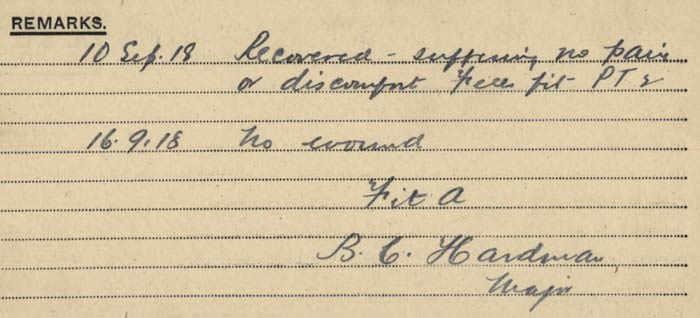 REMARKS.
10 Sep. 18 Recovered - suffering no pain
or discomfort Feels fit PT
16.9.18 No wound
Fit A
B. C. Hardman
Major